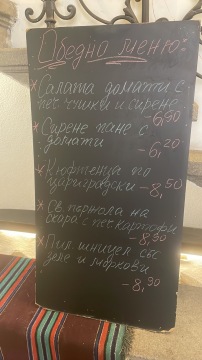 Обедно меню:
* Салата домати с
печ. чушки и сирене
- 6,90
* Сирене пане с
домати
- 6,20
* Кюфтенца по
цариградски - 8,50
* Св. пържола на
скара с печ. картофи
- 8,90
* Пил. шницел със
зеле и моркови
- 8,90